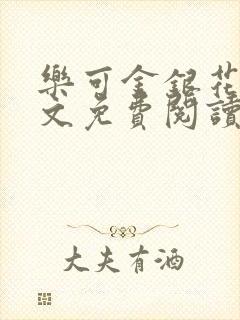 樂可金銀花
文免費閱讀
大夫有酒